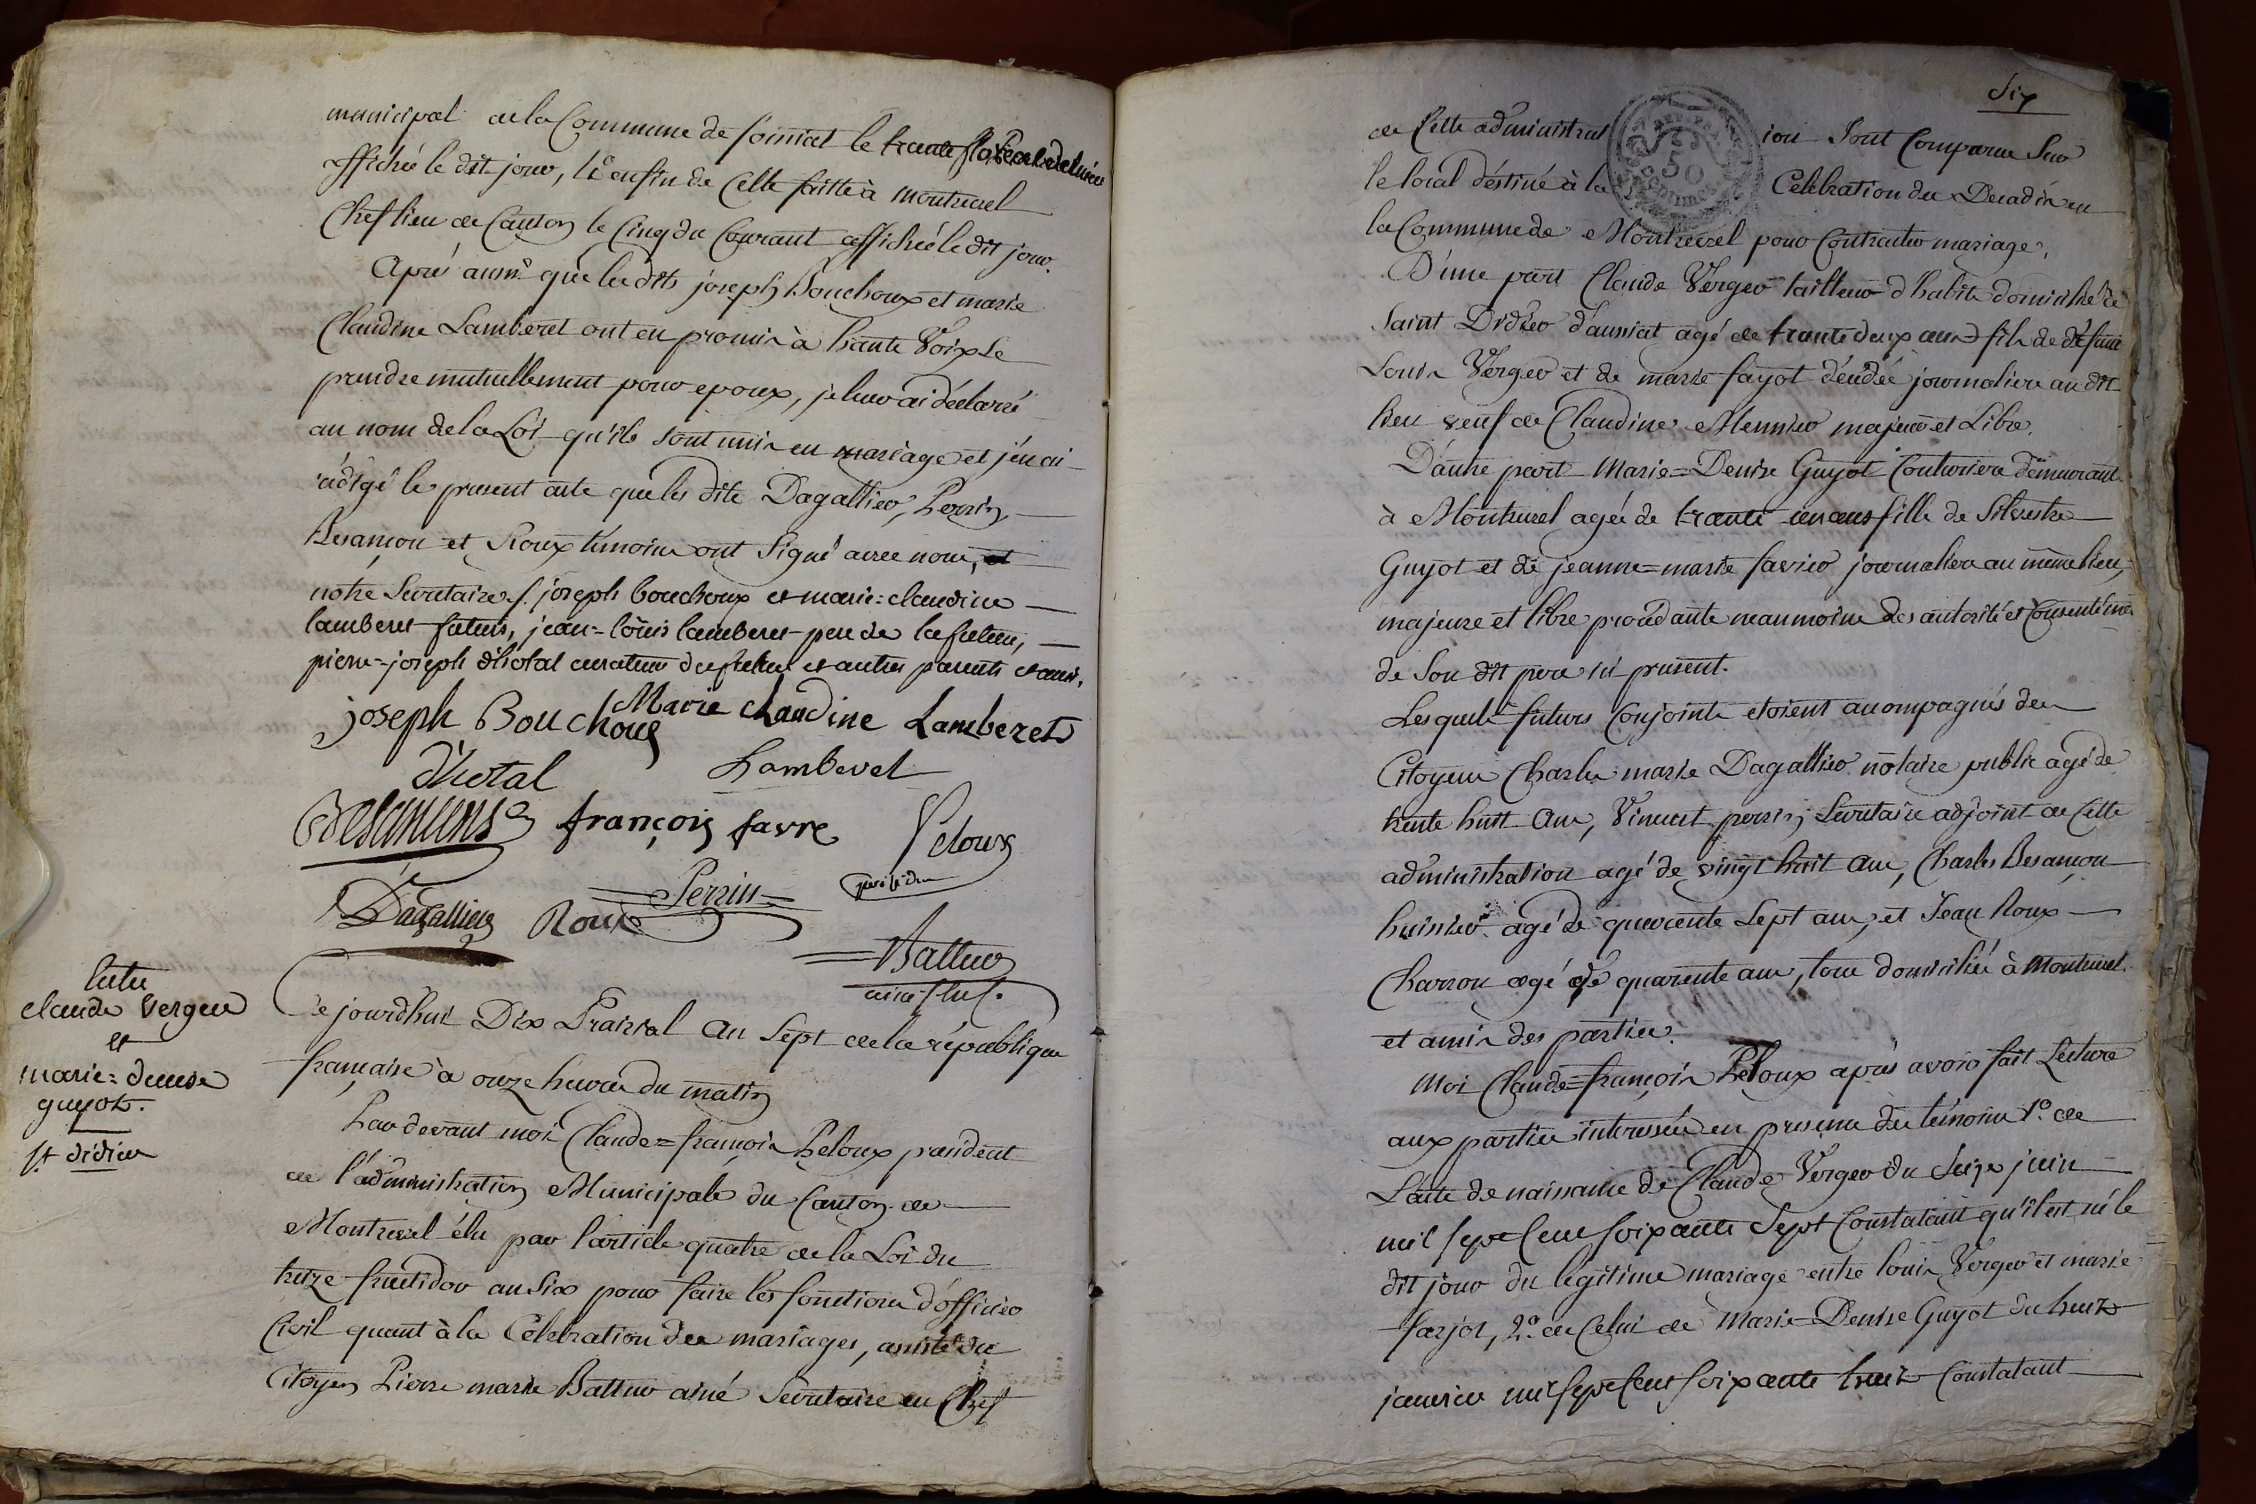 municipal de la Commune de foissiat le trente floreal dernier
affichée le dit jour, et enfin de Celle faitte à montrevel
Chef lieu de Canton le Cinq du Courant affichée le dit jour.
Après aussi que les dits joseph Bouchoux et marie
Claudine Lamberet ont eu promis à haute Voix se
prendre mutuellement pour epoux, je leur ai déclaré
au nom de la Loi qu'ils sont unis en mariage et j'en ai
rédigé le present acte que les dits Dagallier, Perrin,
Besançon et Roux témoins ont Signé avec nous, et
notre Secretaire, joseph bouchoux et marie=claudine
lamberet futurs, jean=loüis lamberet pere de la future,
pierre=joseph d'hotal curateur du futur et autres parents et amis.
joseph Bouchoux Marie claudine Lamberet
d'hotal Lamberet
Besançon françois favre Peloux
président
Dagallier Roux Perrin
Battur
ainé
Ce jourd'hui Dix Prairial an Sept de la république
française à onze heures du matin
Par devant moi Claude=françois Peloux president
de l'administration Municipale du Canton de
Montrevel élu par l'article quatre de la Loi du
treize fructidor an Six pour faire les fonctions d'officier
Civil quant à la Célébration des mariages, assisté du
Citoyen Pierre marie Battur ainé Secretaire en Chef
entre
claude Verger
et
marie=denise
guyot.
St didier
Six
de Cette administration Sont Comparu Sur
le local déstiné à la Celebration du Decadi en
la Commune de Montrevel pour Contracter mariage.
D'une part Claude Verger tailleur d'habits domicilié à
Saint Didier d'aussiat agé de trante deux ans fils de défunt
Louis Verger et de marie fayot journaliere au dit
lieu veuf de Claudine Meunier majeur et Libre.
D'autre part Marie=Denise Guyot Couturiere demeurant
à Montrevel agée de trante un ans fille de Silvestre
Guyot et de jeanne=marie favier journaliers au même lieu,
majeure et libre procédante neanmoins des autorité et Consentement
de Son dit pere ici present.
Lesquels futurs Conjoints etoient acompagnés des
Citoyens Charles marie Dagallier notaire public agé de
trente huit ans, Vincent perrin Secretaire adjoint de Cette
administration agé de vingt huit ans, Charles Besançon
huissier agé de quarente Sept ans, et Jean Roux
Charron agé de quarente ans, tous domiciliés à Montrevel
et amis des parties.
Moi Claude=françois Peloux après avoir fait Lecture
aux parties interessées en presence des témoins 1.º de
L'acte de naissance de Claude Verger du Seize juin
mil sept Cent soixante Sept Constatant qu'il est né le
dit jour du legitime mariage entre louis Verger et marie
farjot, 2.º de Celui de Marie=Denise Guyot du huit
janvier mil sept Cent soixante huit Constatant